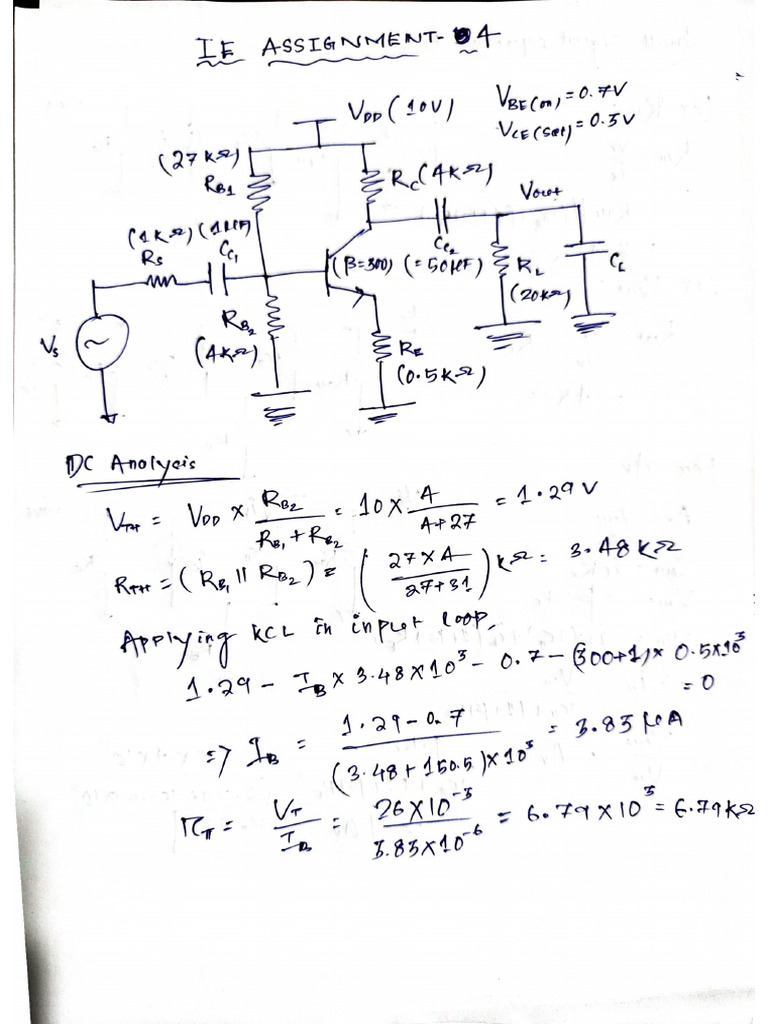 IE ASSIGNMENT-4
VDD (10V)
VBE(on) = 0.7V
VCE(sat) = 0.3V
(27 kΩ)
RB1
RC (4kΩ)
Vout
(1kΩ) (1μF)
RS
CC1
CC2
(β=300) (=50μF)
RL
(20kΩ)
CL
VS
RB2
(4kΩ)
RE
(0.5kΩ)
DC Analysis
VTH = VDD × RB2 / (RB1 + RB2) = 10 × 4 / (4+27) = 1.29 V
RTH = (RB1 || RB2) = (27×4 / 27+31) kΩ = 3.48 kΩ
Applying KCL in input loop,
1.29 - IB × 3.48×10³ - 0.7 - (300+1) × 0.5×10³
= 0
=> IB = (1.29-0.7) / ((3.48+150.5)×10³) = 3.83 μA
rπ = VT / IB = 26×10⁻³ / 3.83×10⁻⁶ = 6.79×10³ = 6.79kΩ